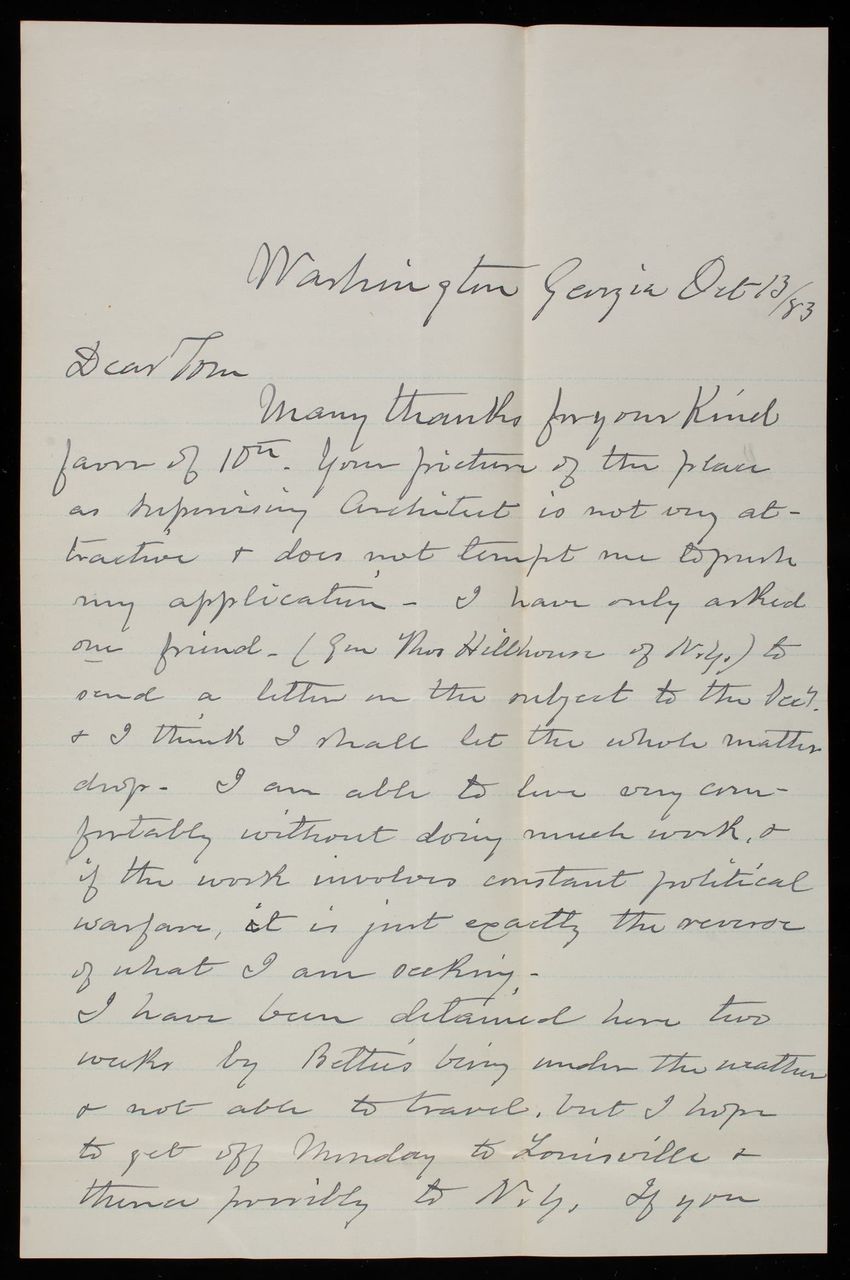 Washington Georgia Oct 13/83
Dear Tom
Many thanks for your kind
favor of 10th. Your picture of the place
as Supervising Architect is not very at-
tractive & does not tempt me to push
my application - I have only asked
one friend - (Gen Thos Hillhouse of N.Y.) to
send a letter on the subject to the Secy.
& I think I shall let the whole matter
drop - I am able to live very com-
fortably without doing much work, &
if the work involves constant political
warfare, it is just exactly the reverse
of what I am seeking -
I have been detained here two
weeks by Bettie's being under the weather
& not able to travel, but I hope
to get off Monday to Louisville &
thence possibly to N.Y. If you